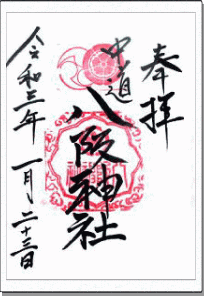 奉拝
中道
八阪神社
令和三年 一月二十三日